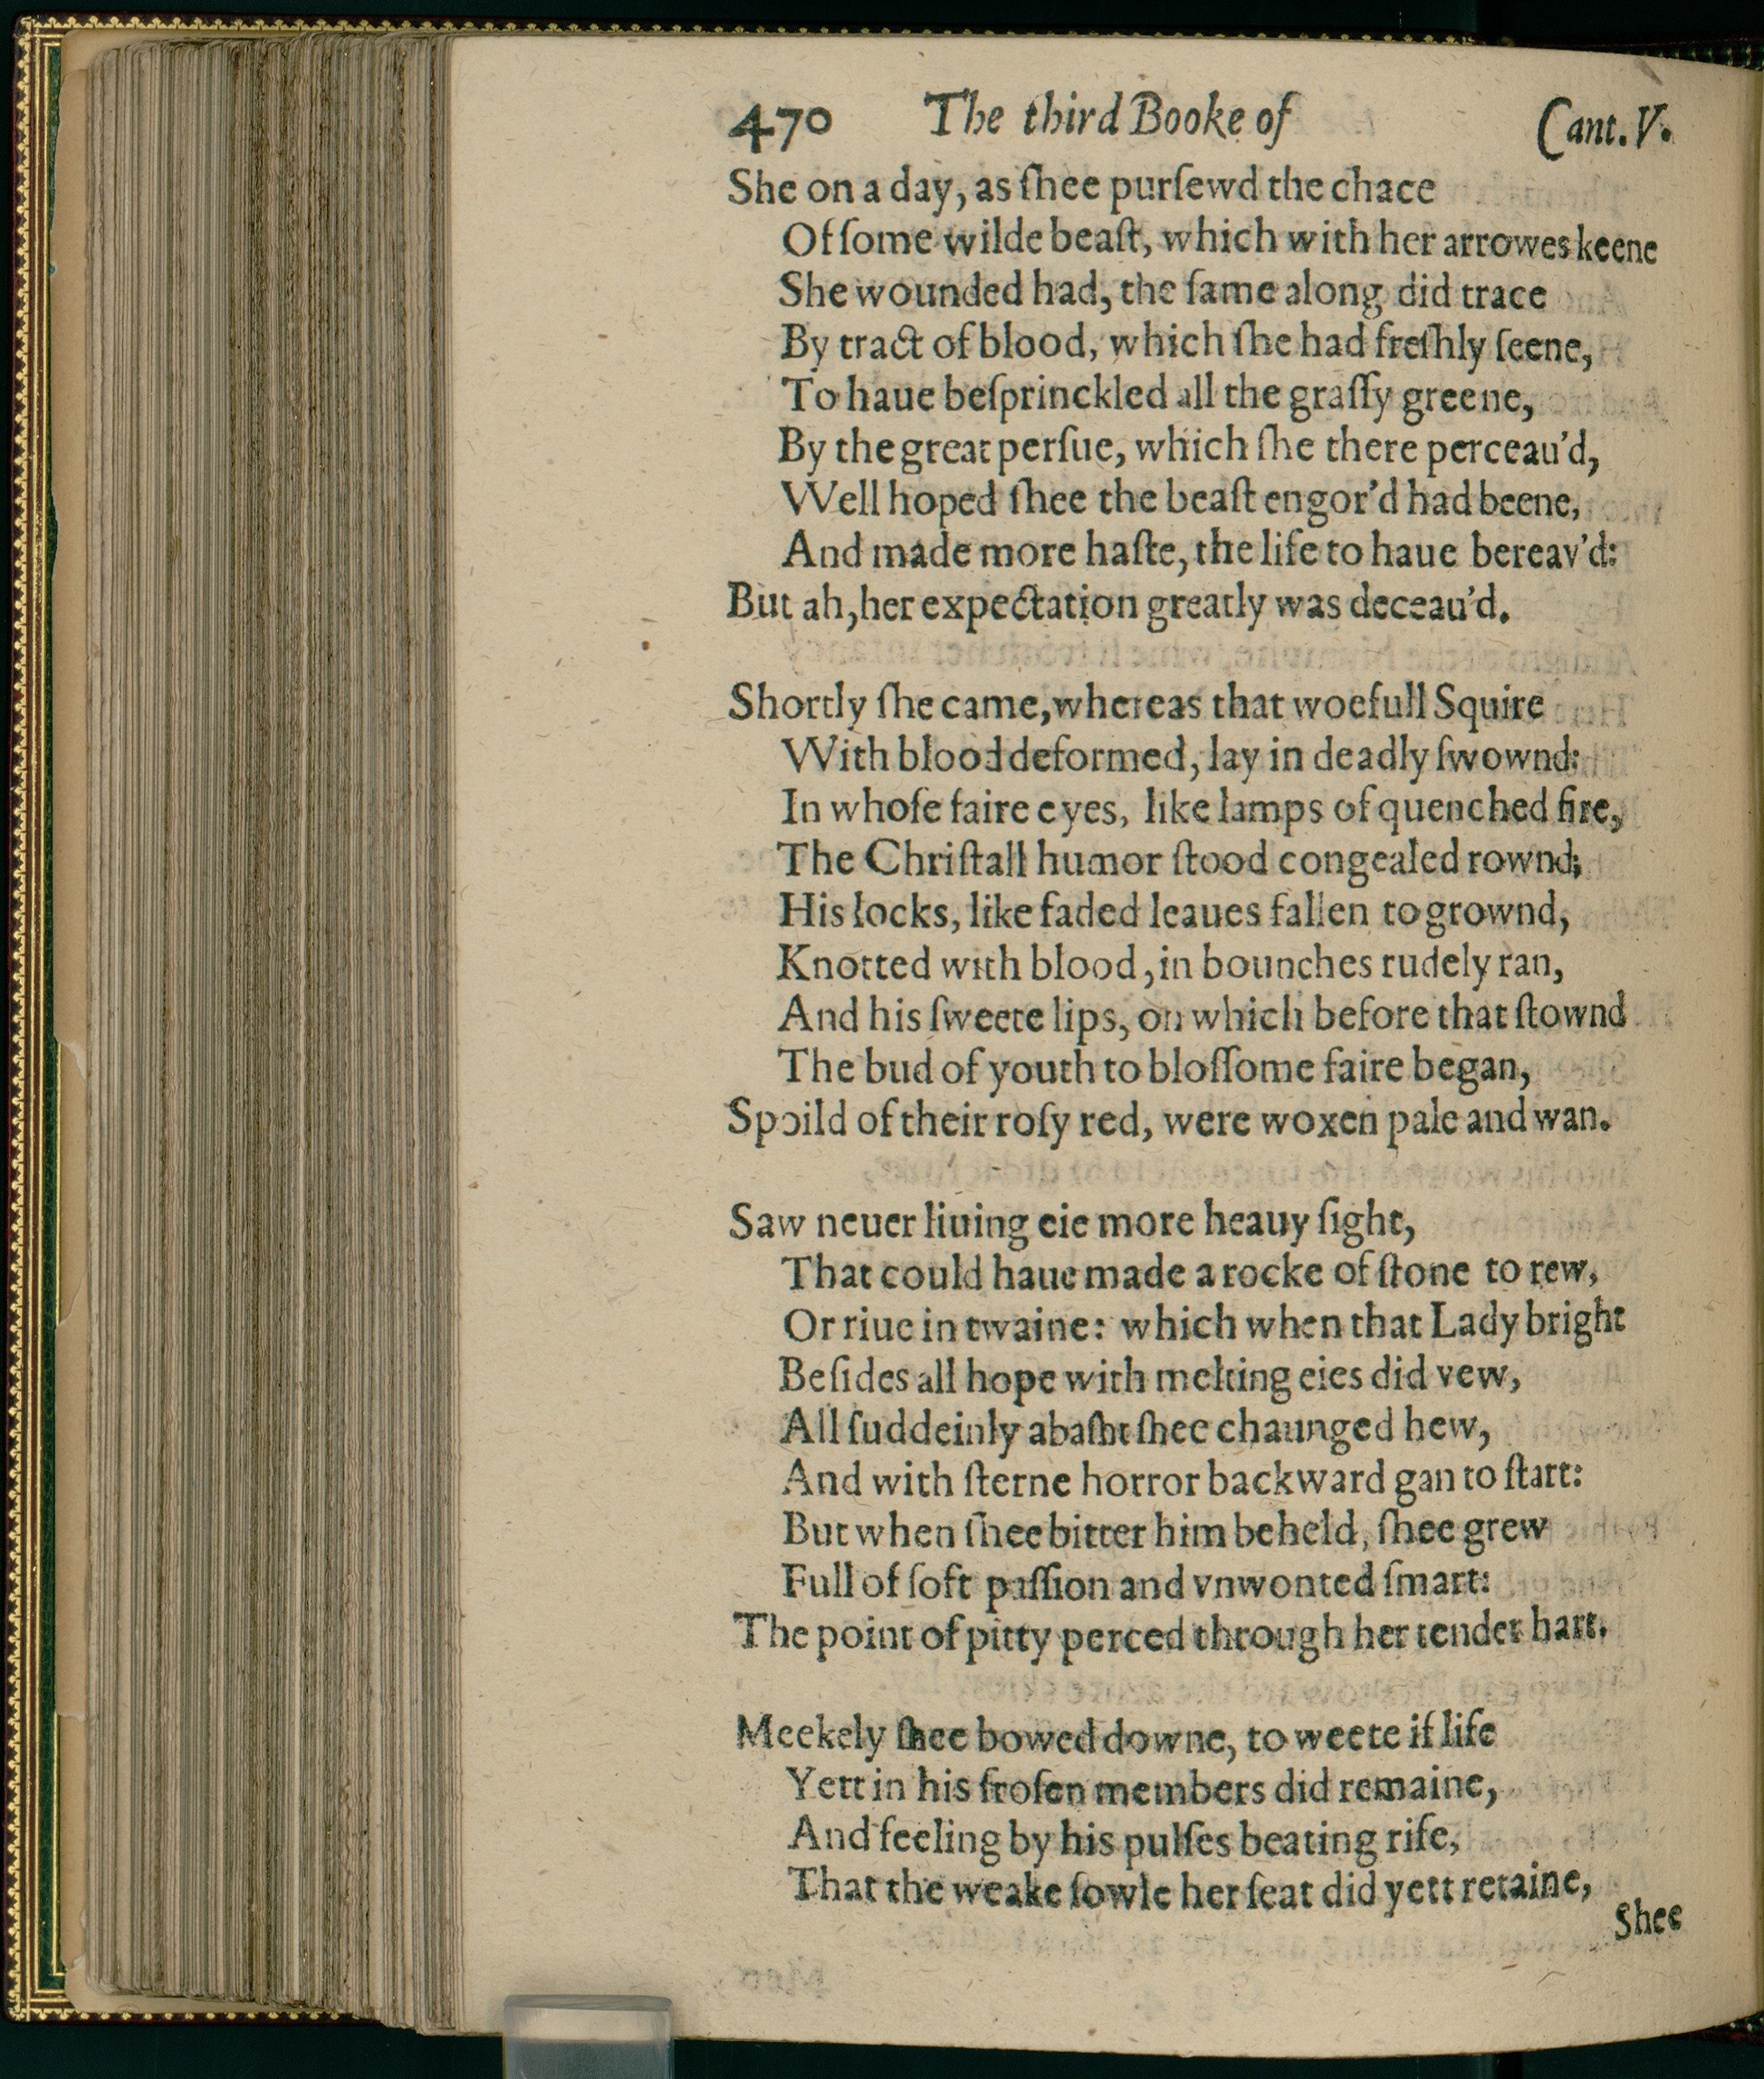 470 The third Booke of Cant. V.
She on a day, as ſhee purſewd the chace
Of ſome wilde beaſt, which with her arrowes keene
She wounded had, the ſame along did trace
By tract of blood, which ſhe had freſhly ſeene,
To haue beſprinckled all the graſſy greene,
By the great perſue, which ſhe there perceau'd,
Well hoped ſhee the beaſt engor'd had beene,
And made more haſte, the life to haue bereav'd:
But ah, her expectation greatly was deceau'd.
Shortly ſhe came, whereas that woefull Squire
With blood deformed, lay in deadly ſwownd:
In whoſe faire eyes, like lamps of quenched fire,
The Chriſtall humor ſtood congealed rownd;
His locks, like faded leaues fallen to grownd,
Knotted with blood, in bounches rudely ran,
And his ſweete lips, on which before that ſtownd
The bud of youth to bloſſome faire began,
Spoild of their roſy red, were woxen pale and wan.
Saw neuer liuing eie more heauy ſight,
That could haue made a rocke of ſtone to rew,
Or riue in twaine: which when that Lady bright
Beſides all hope with melting eies did vew,
All ſuddeinly abaſht ſhee chaunged hew,
And with ſterne horror backward gan to ſtart:
But when ſhee bitter him beheld, ſhee grew
Full of ſoft paſſion and vnwonted ſmart:
The point of pitty perced through her tender hart.
Meekely ſhee bowed downe, to weete if life
Yett in his froſen members did remaine,
And feeling by his pulſes beating rife,
That the weake ſowle her ſeat did yett retaine,
Shee